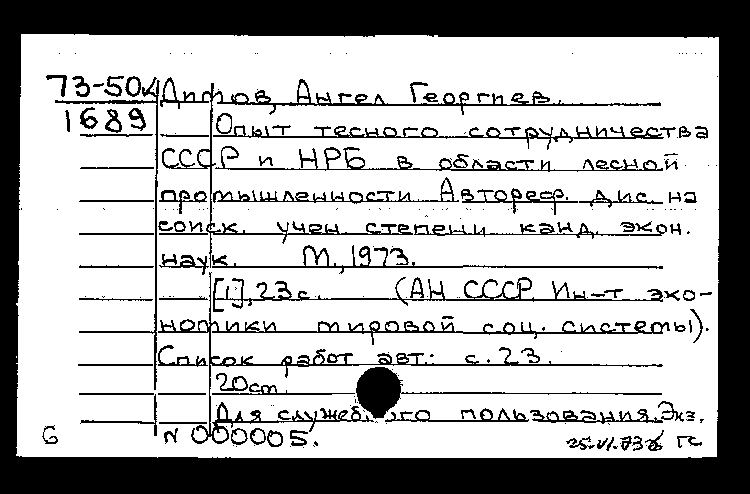 73-504 Дитов, Ангел Георгиев.
1689 Опыт тесного сотрудничества
СССР и НРБ в области лесной
промышленности Автореф. дис. на
соиск. учен. степени канд. экон.
наук. М., 1973.
[1], 23 с. (АН СССР. Ин-т эко-
номики мировой соц. системы).
Список работ авт.: с. 23.
20 см.
Для служебного пользования. Экз.
N 000005.
6 25.VI.73 ГС